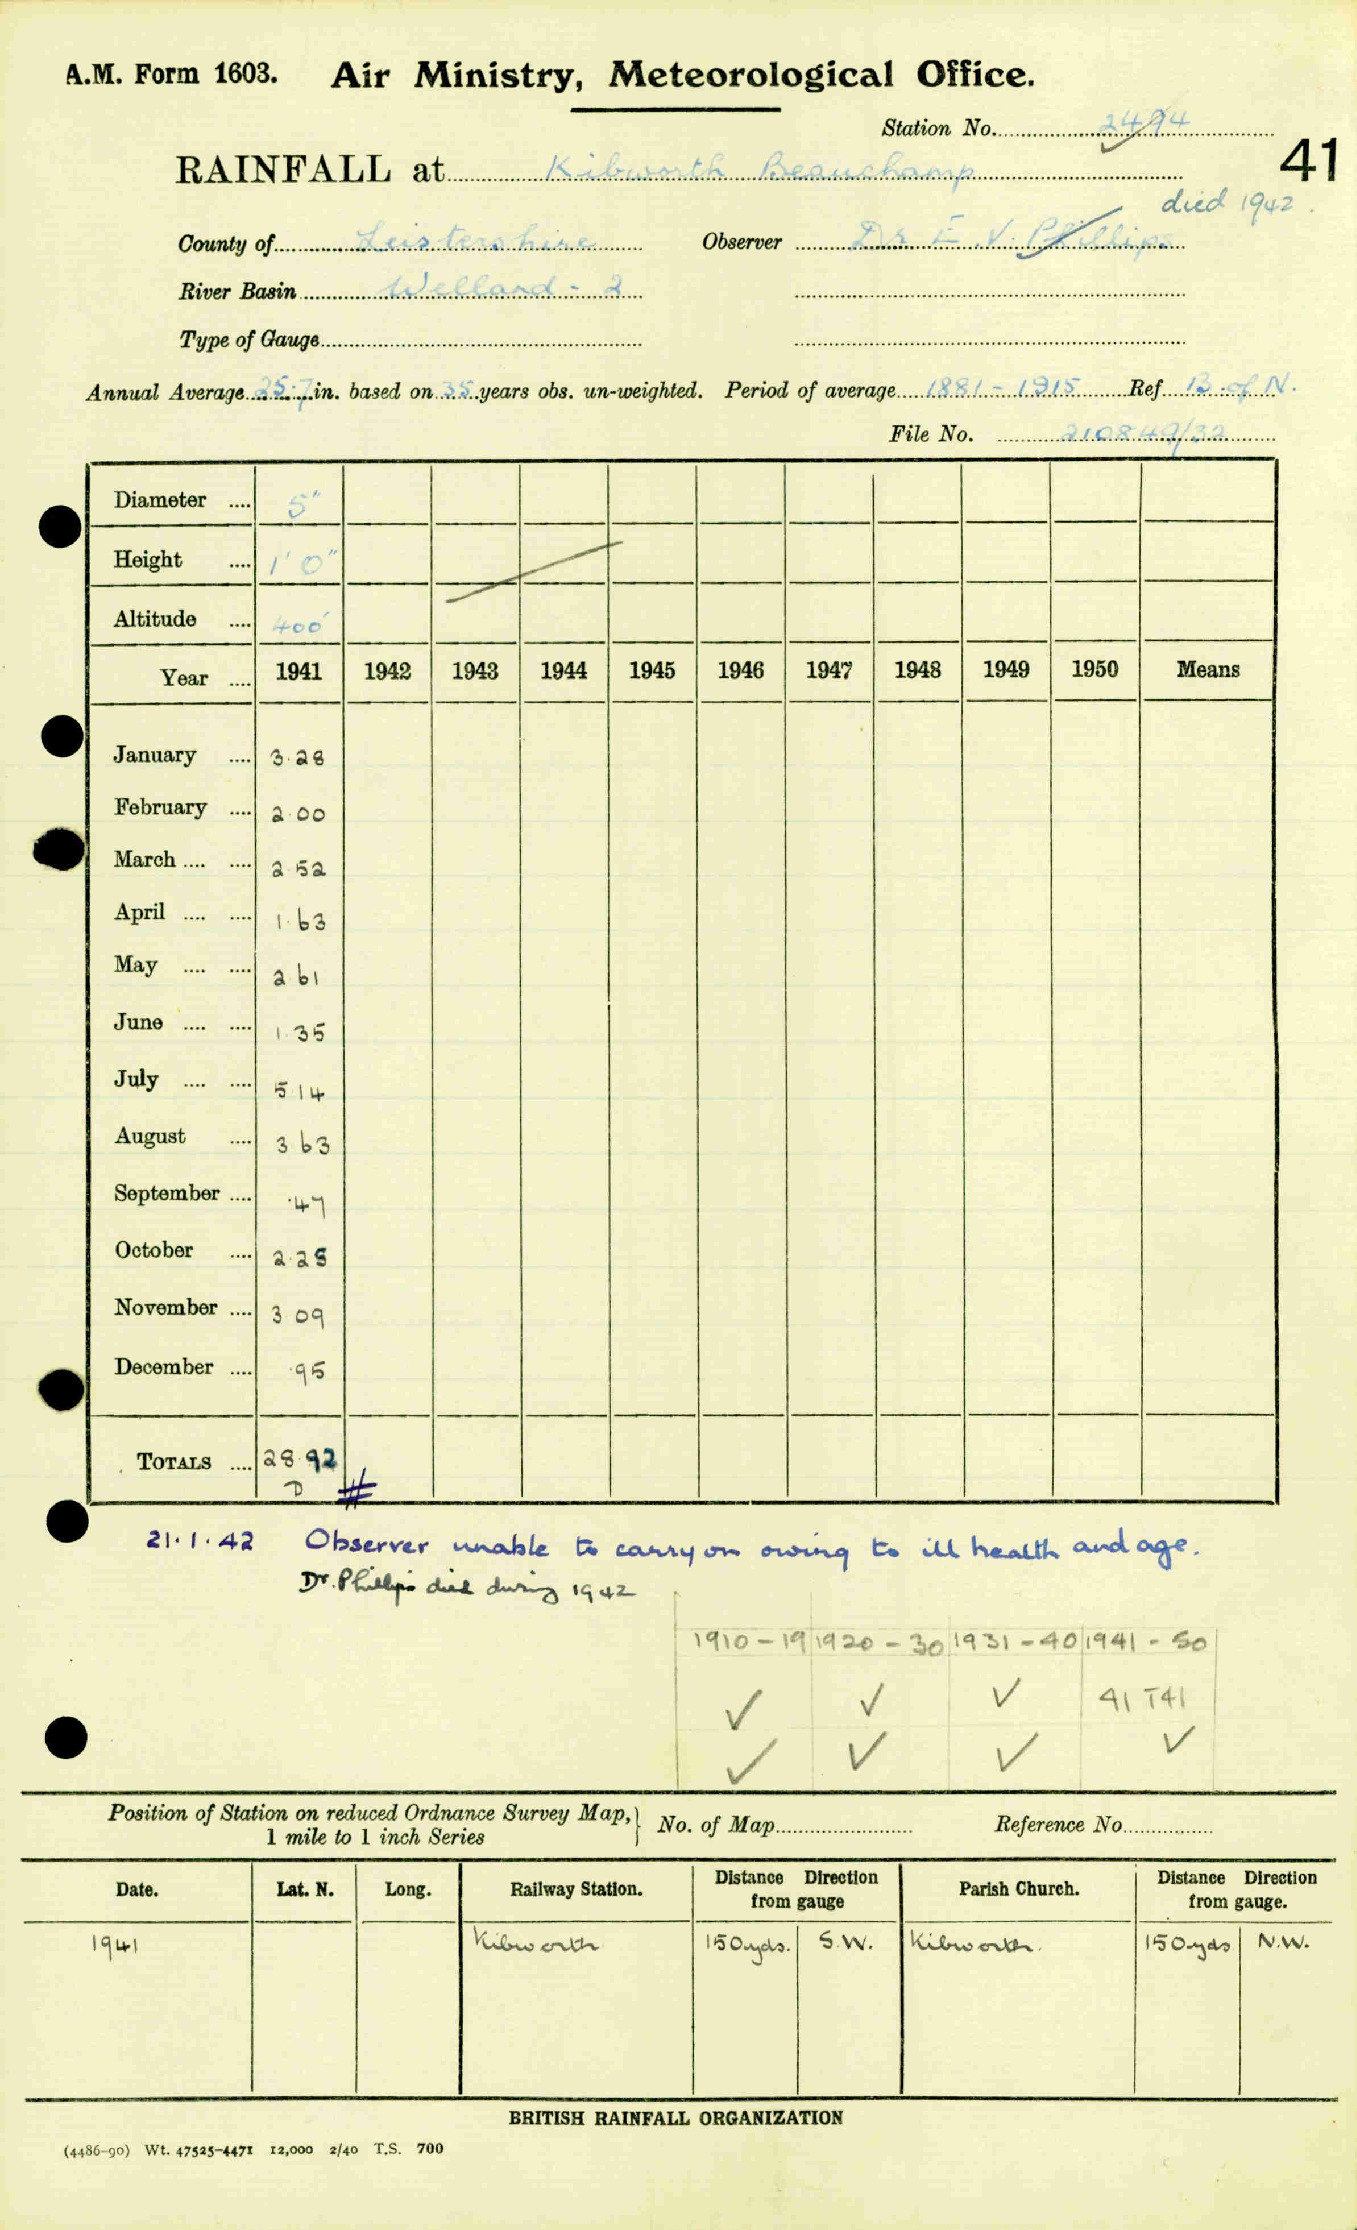 A.M. Form 1603. Air Ministry, Meteorological Office.
Station No. 2494
41
RAINFALL at Kibworth Beauchamp
died 1942.
County of Leistershire Observer Dr E. V. Phillips
River Basin Welland - 2
Type of Gauge
Annual Average 25.7 in. based on 35 years obs. un-weighted. Period of average 1881 - 1915 Ref. B. of N.
File No. 210849/32
Diameter .... 5"
Height .... 1' 0"
Altitude .... 400'
Year .... 1941 1942 1943 1944 1945 1946 1947 1948 1949 1950 Means
January .... 3.28
February .... 2.00
March .... .... 2.52
April .... .... 1.63
May .... .... 2.61
June .... .... 1.35
July .... .... 5.14
August .... 3.63
September .... .47
October .... 2.25
November .... 3.09
December .... .95
TOTALS .... 28.92
D #
21.1.42 Observer unable to carry on owing to ill health and age.
Dr. Phillips died during 1942
1910-19 1920-30 1931-40 1941-50
✓ ✓ ✓ 41 T41
✓ ✓ ✓ ✓
Position of Station on reduced Ordnance Survey Map, } No. of Map Reference No.
1 mile to 1 inch Series
Date. Lat. N. Long. Railway Station. Distance Direction from gauge Parish Church. Distance Direction from gauge.
1941 Kibworth 150 yds. S.W. Kibworth. 150 yds N.W.
BRITISH RAINFALL ORGANIZATION
(4486-90) Wt. 47525-4471 12,000 2/40 T.S. 700